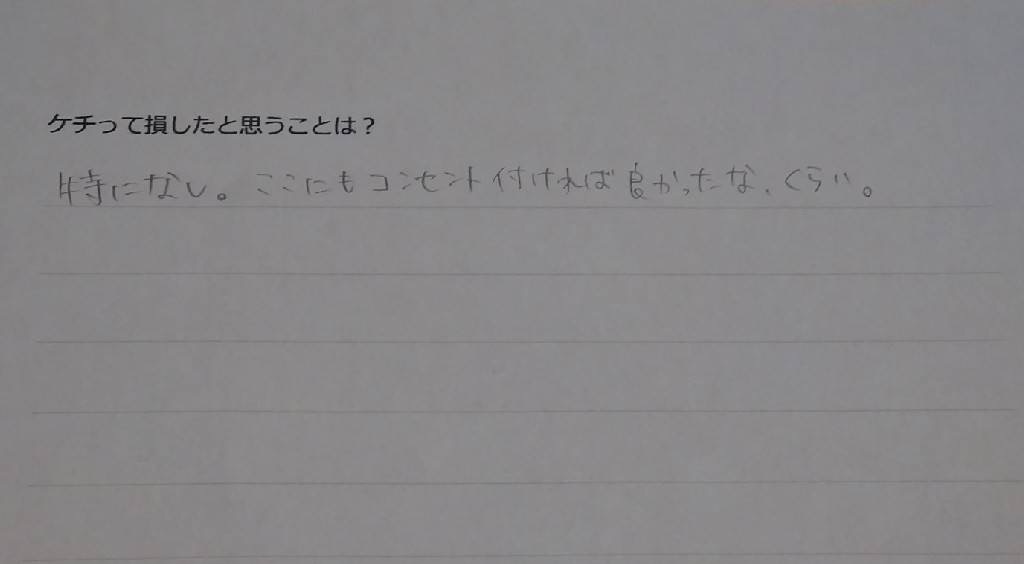 ケチって損したと思うことは？
特になし。ここにもコンセント付ければ良かったな、くらい。